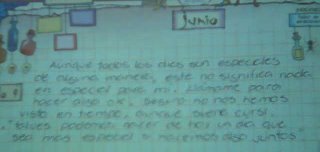 junio
Aunque todos los días son especiales
de alguna manera, este no significa nada
en especial para mi. Llamame para
hacer algo ok. bueno no nos hemos
visto en tiempo, aunque suene cursi.
"talves podamos hacer de hoy un día que
sea mas especial si hacemos algo juntos"